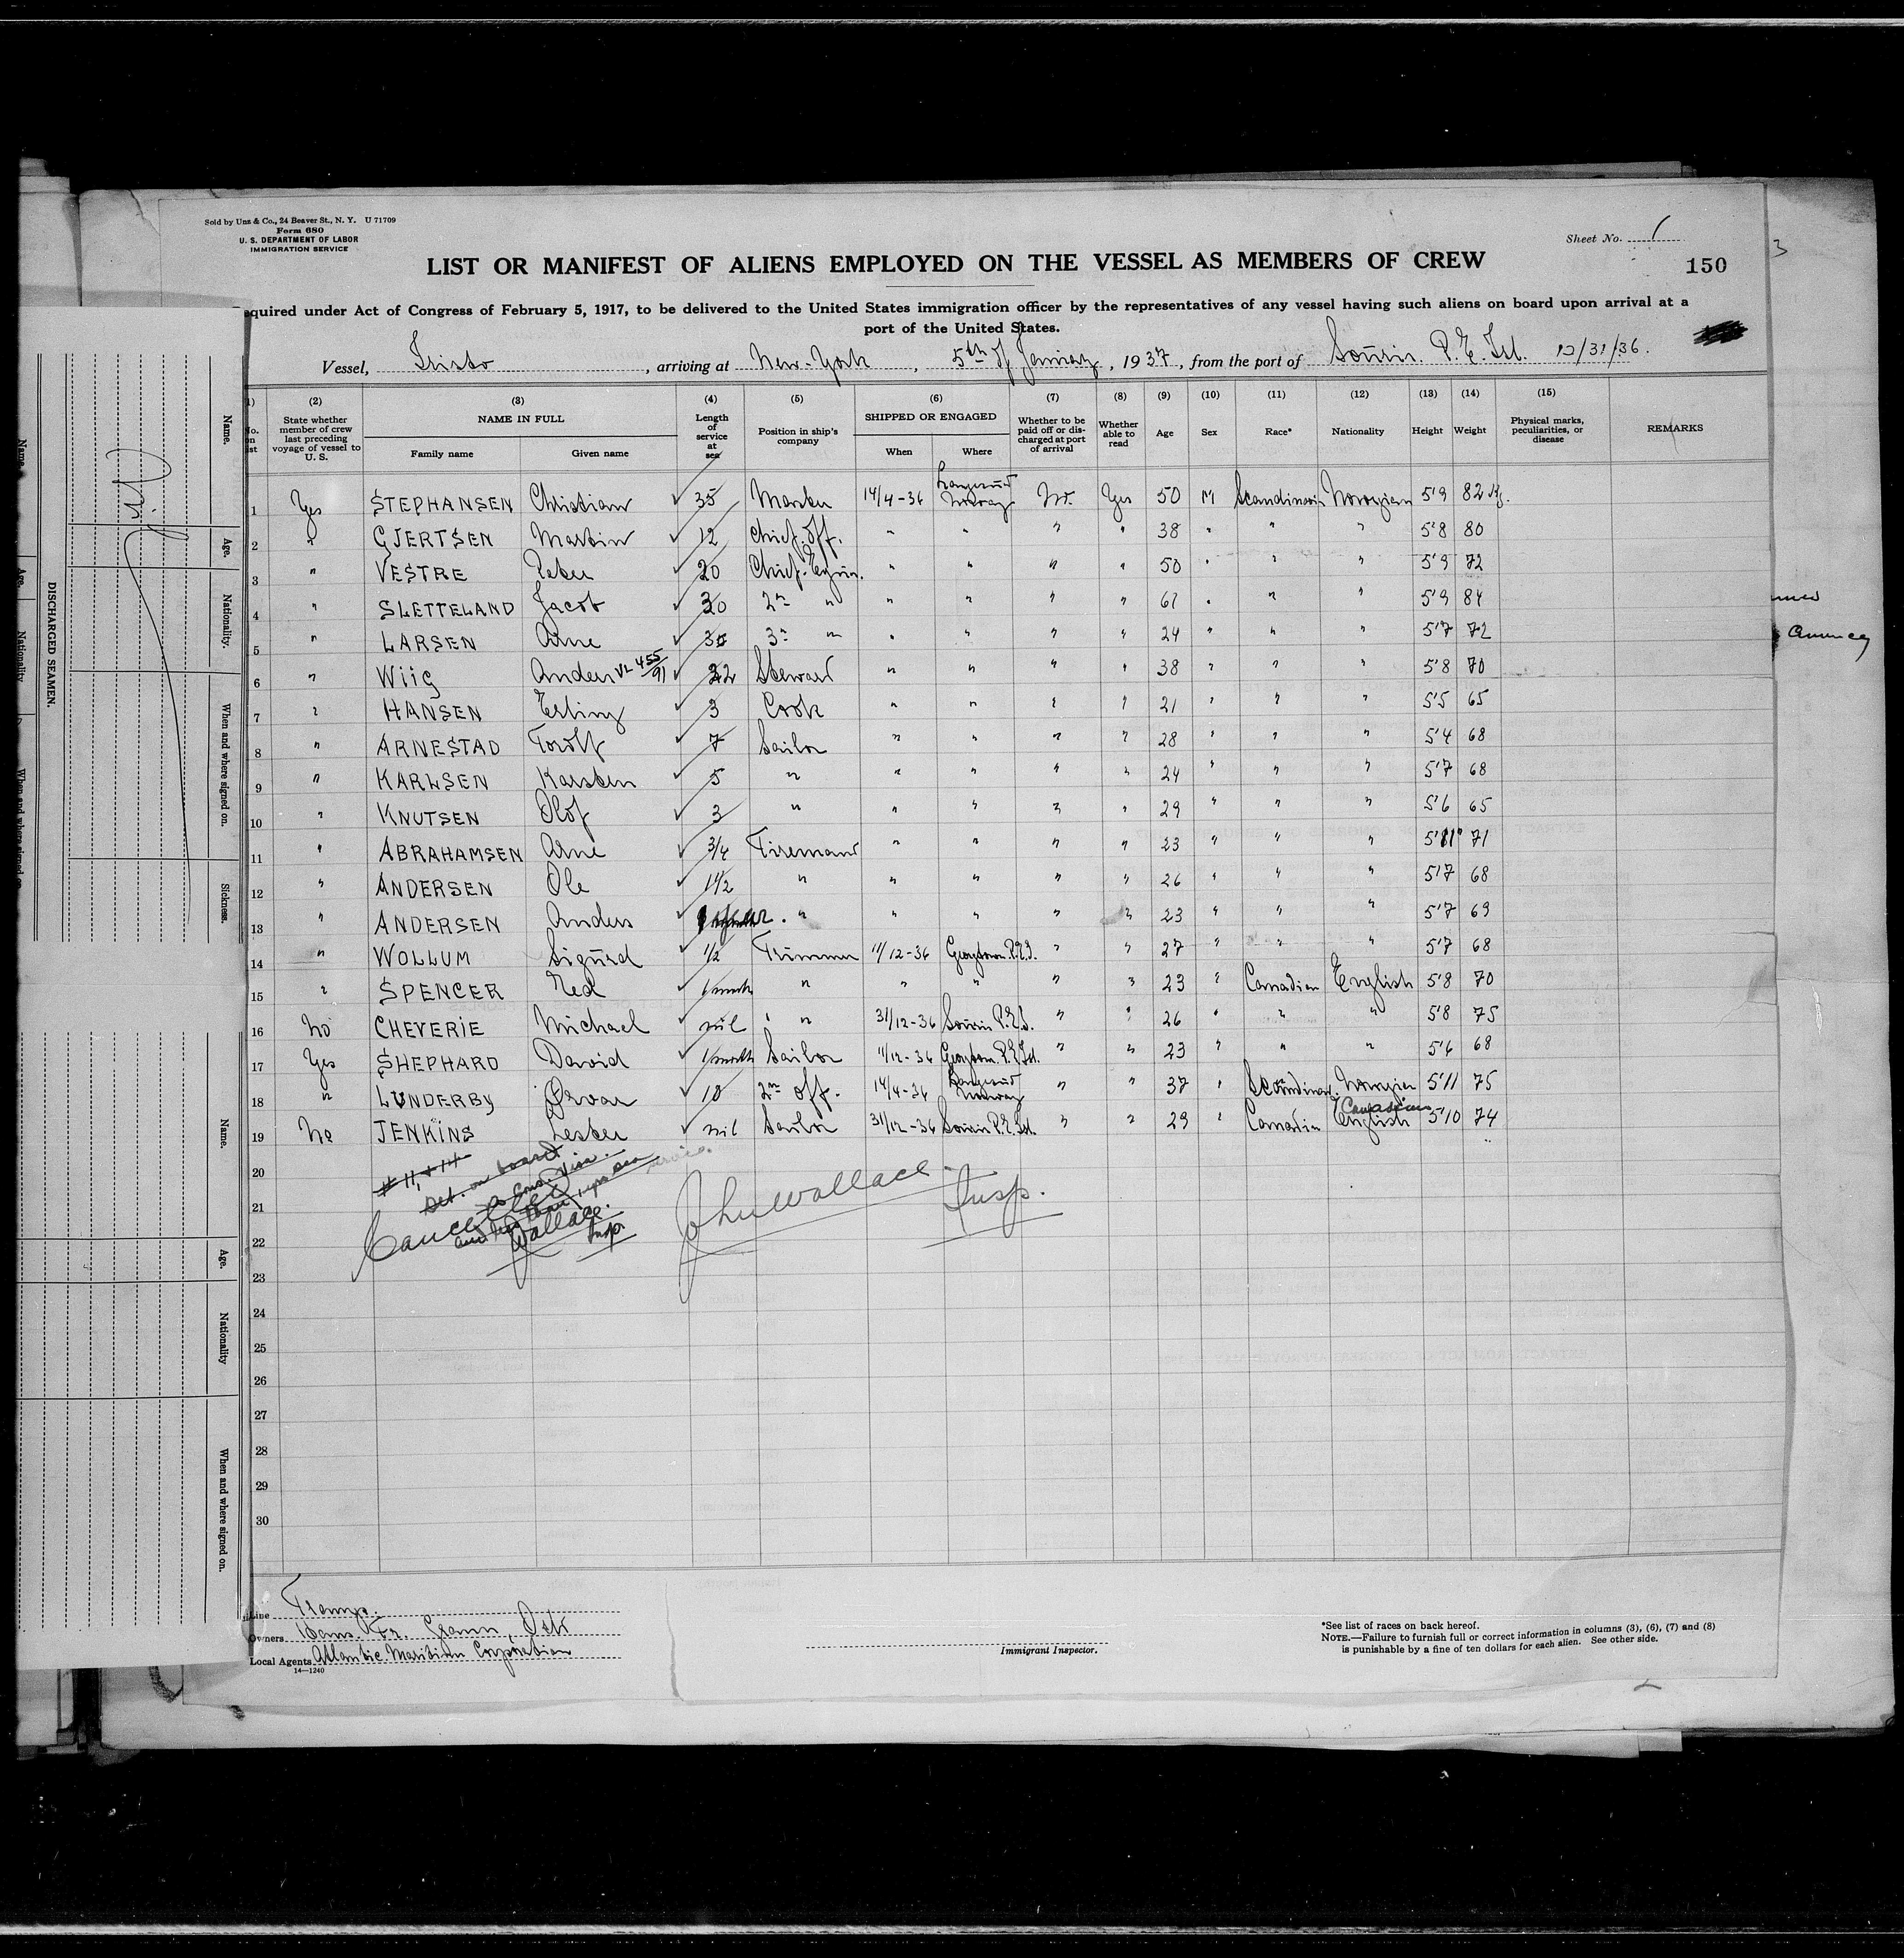 Sold by Unz & Co., 24 Beaver St., N. Y. U 71709
Form 680
U. S. DEPARTMENT OF LABOR
IMMIGRATION SERVICE
Sheet No. 1
LIST OR MANIFEST OF ALIENS EMPLOYED ON THE VESSEL AS MEMBERS OF CREW
150
equired under Act of Congress of February 5, 1917, to be delivered to the United States immigration officer by the representatives of any vessel having such aliens on board upon arrival at a
port of the United States.
Vessel, Tristo, arriving at New-York, 5th of January, 1937, from the port of Souris. P. E. Isl. 12/31/36.
(2) (3) (4) (5) (6) (7) (8) (9) (10) (11) (12) (13) (14) (15)
State whether member of crew last preceding voyage of vessel to U. S. NAME IN FULL Family name Given name Length of service at sea Position in ship's company SHIPPED OR ENGAGED When Where Whether to be paid off or discharged at port of arrival Whether able to read Age Sex Race* Nationality Height Weight Physical marks, peculiarities, or disease REMARKS
1 Yes STEPHANSEN Christian ✓ 35 Master 14/4-36 Langesund Norway No. Yes 50 M Scandinavia Norwegian 5'9 82 kg.
2 " GJERTSEN Martin ✓ 12 Chief. Off. " " " " 38 " " " 5'8 80
3 " VESTRE Peter ✓ 20 Chief. Engin. " " " " 50 " " " 5'9 72
4 " SLETTELAND Jacob ✓ 30 2" " " " " " 61 " " " 5'9 84
5 " LARSEN Arne ✓ 3 3" " " " " " 24 " " " 5'7 72
6 " Wiig Anders ✓ 22 Steward " " " " 38 " " " 5'8 70
7 " HANSEN Erling ✓ 3 Cook " " " " 21 " " " 5'5 65
8 " ARNESTAD Torolf ✓ 7 Sailor " " " " 28 " " " 5'4 68
9 " KARLSEN Karsten ✓ 5 " " " " " 24 " " " 5'7 68
10 " KNUTSEN Olof ✓ 3 " " " " " 29 " " " 5'6 65
11 " ABRAHAMSEN Arne ✓ 3/4 Firemand " " " " 23 " " " 5'11" 71
12 " ANDERSEN Ole ✓ 1 1/2 " " " " " 26 " " " 5'7 68
13 " ANDERSEN Anders ✓ " " " " " 23 " " " 5'7 69
14 " WOLLUM Sigurd ✓ 1/2 Trimmer 11/12-36 Georgetown. P.E.I. " " 27 " " " 5'7 68
15 " SPENCER Ted ✓ 1/month " " " " " 23 " Canadian English 5'8 70
16 No CHEVERIE Michael ✓ nil " 31/12-36 Souris P.E.I. " " 26 " " " 5'8 75
17 Yes SHEPHARD David ✓ 1/month Sailor 11/12-36 Georgtown. P.E.Isl. " " 23 " " " 5'6 68
18 " LUNDERBY Ørvar ✓ 10 2" Off. 14/4-36 Langesund Norway " " 37 " Scandinavi. Norwegian 5'11 75
19 No JENKINS Lester ✓ nil Sailor 31/12-36 Souris P.E. Isl. " " 29 " Canadian English Canadian 5'10 74
20
# 11, + 14
Det. on board
21
Cancelled
Wallace.
Insp.
John Wallace.
Insp.
22
23
24
25
26
27
28
29
30
Line Tramp.
Owners Hans Fr. Grann, Oslo
Local Agents Atlantic Maritime Corporation
14—1240
Immigrant Inspector.
*See list of races on back hereof.
NOTE.—Failure to furnish full or correct information in columns (3), (6), (7) and (8)
is punishable by a fine of ten dollars for each alien. See other side.
DISCHARGED SEAMEN.
Name.
Age.
Nationality.
When and where signed on.
Sickness.
Nil
Name.
Age.
Nationality
When and where signed on.